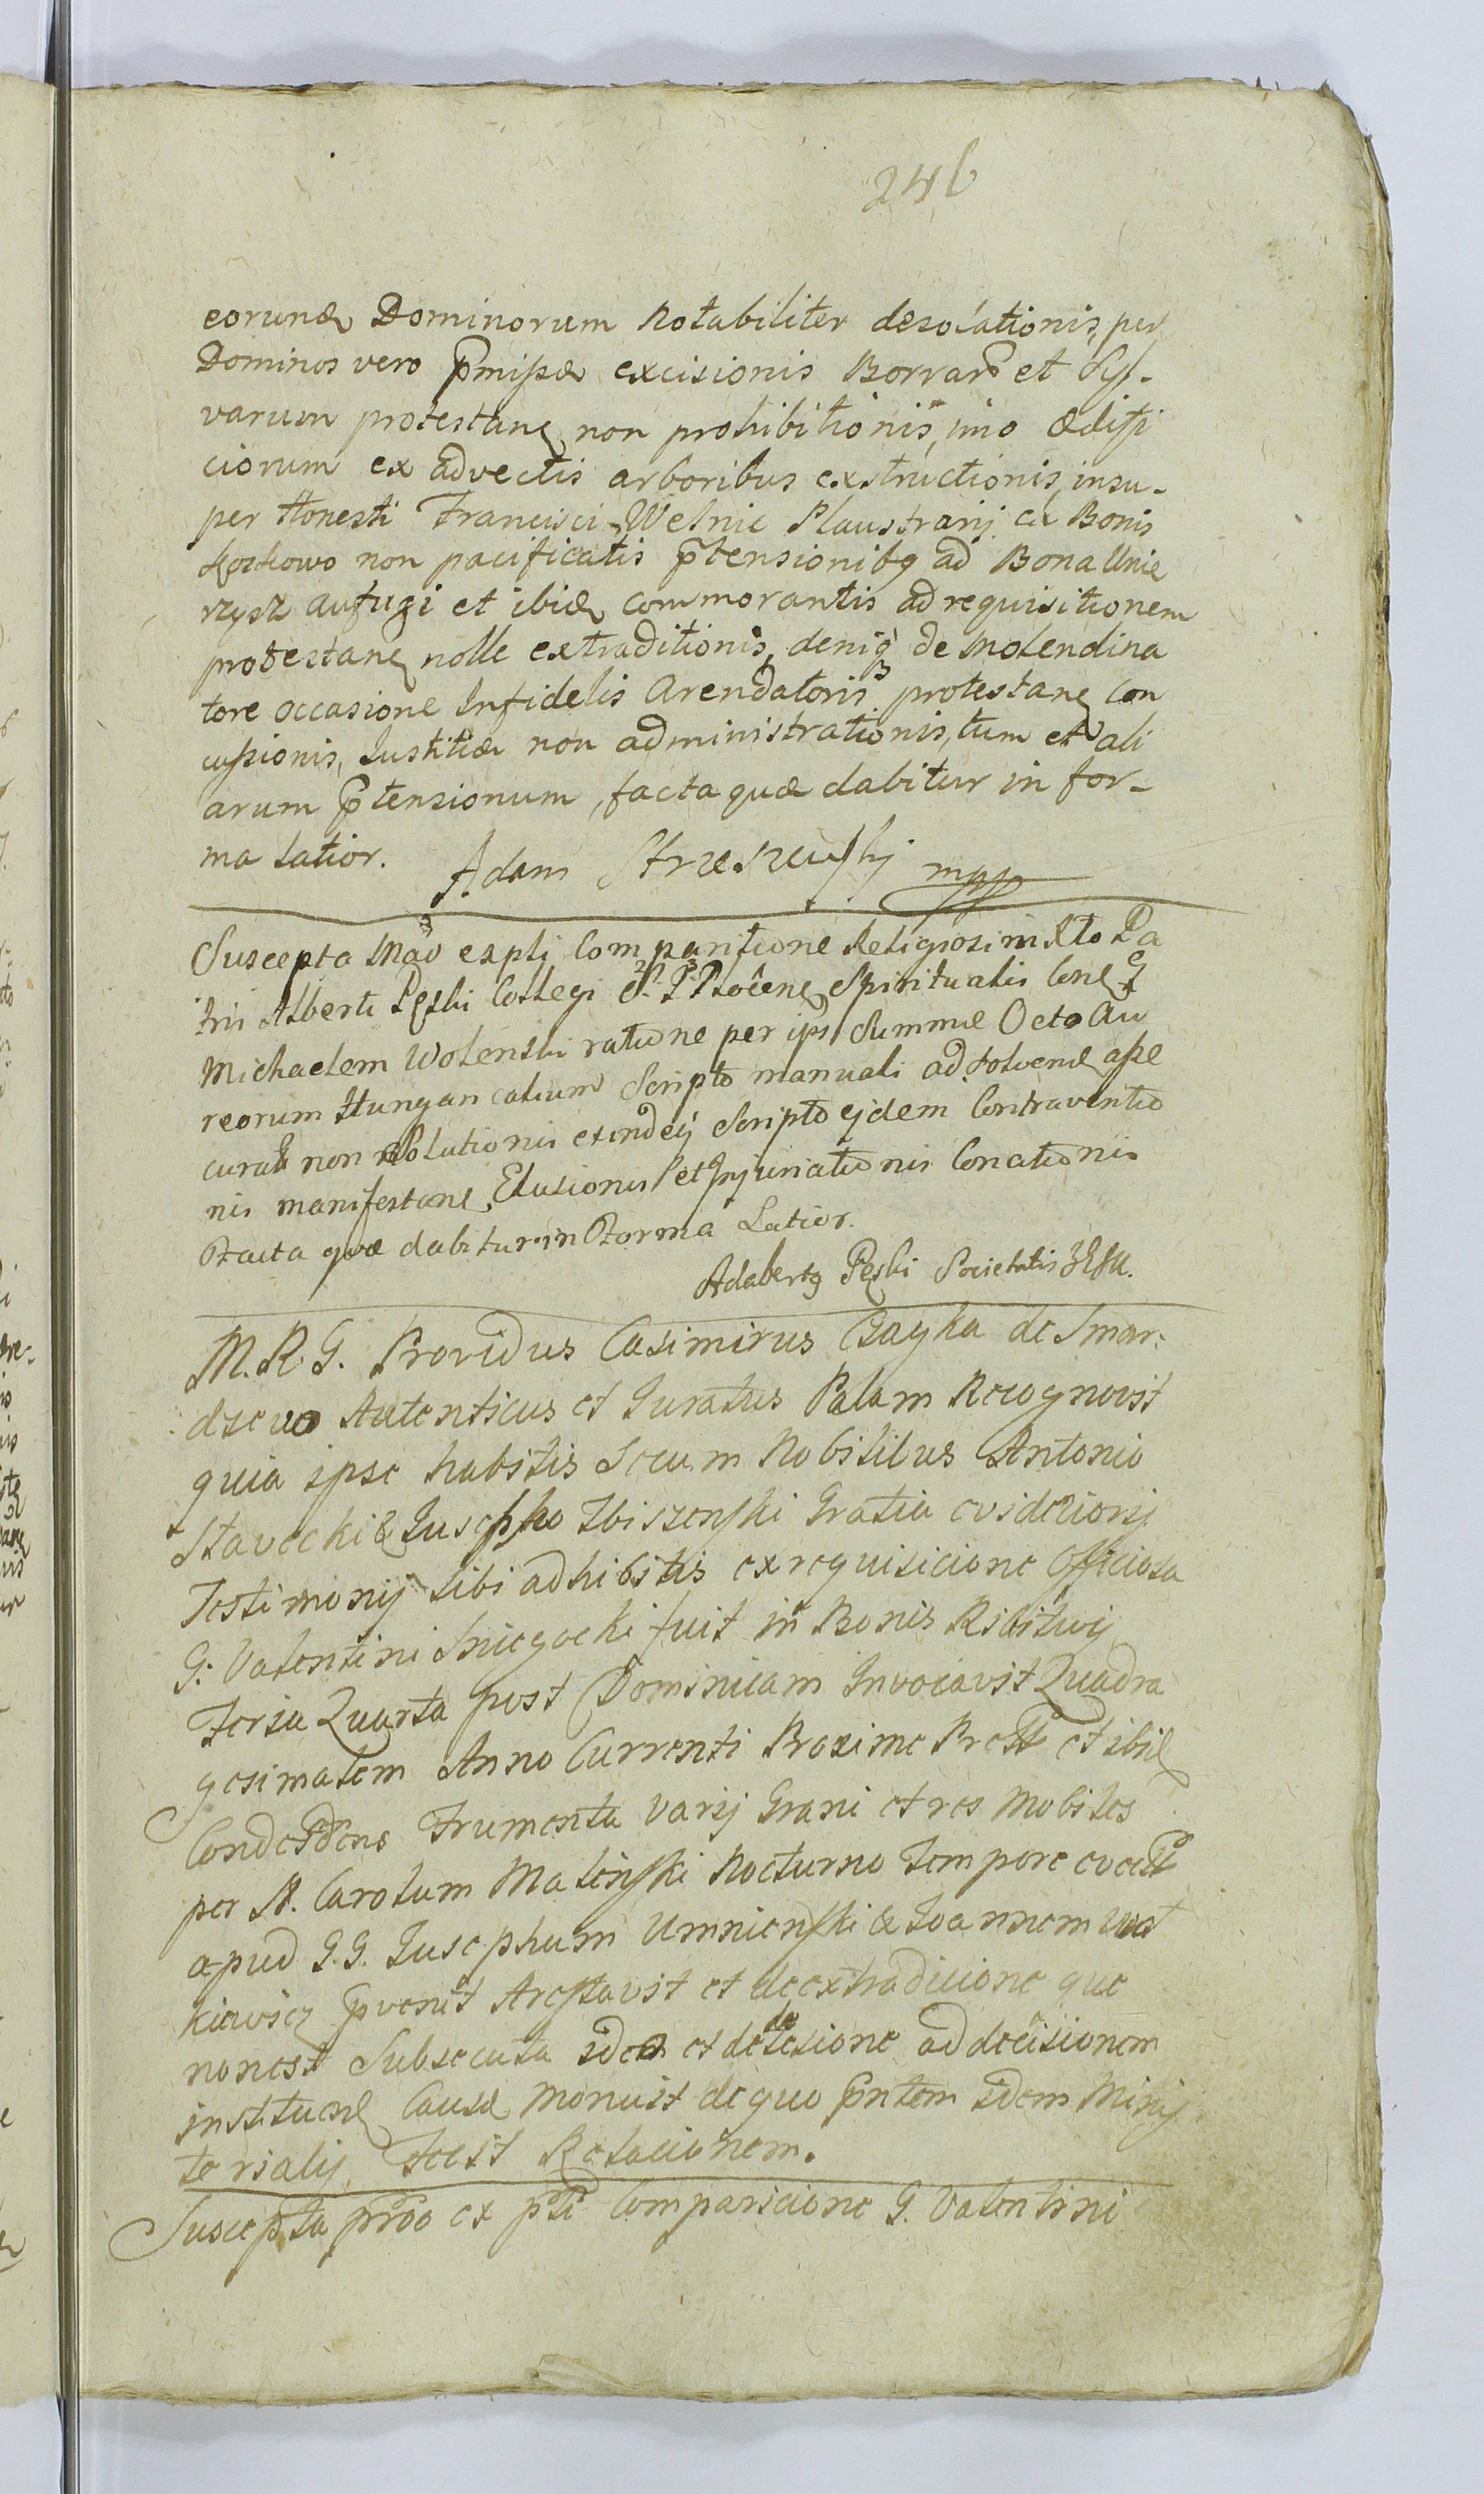 246
eorund Dominorum Notabiliter desolationis, per
Dominos vero pmissæ excisionis Borrar et Syl-
varum protestan non prohibitionis, imo ædifi
ciorum ex advectis arboribus exstructionis, insu-
per Honesti Francisci Welnic Plaustrarij ex Bonis
Koskowo non pacificatis ptensionibq ad Bona Unie
rzysz aufugi et ibid commorantis ad requisitionem
protestan nolle extraditionis, deniq de Molendina
tore occasione Infidelis Arendatoris protestan Con
cussionis, Iustitiæ non administrationis, tum et ali
arum ptensionum, facta quæ dabitur in for-
ma latior. Adam Strzeszewski mpp
Suscepta Mao expti Comparitione Religiosi in Xto Pa
tris Alberti Pęski Collegi S. J. Plocen Spiritualis Con G
Michaelem Wolenski ratione per ips Summæ Octo Au
reorum Hungaricalium Scripto manuali ad solvend asse
curat non solutionis exinde ej Scripto ejdem Contraventio
nis manifestan Elusionis et Injuriationis Conationis
Facta quæ dabitur in Forma Latior.
Adalbertq Pęski Societatis JEsu.
M. R. G. Providus Casimirus Czayka de Smar:
dzewo Autenticus et Iuratus Palam Recognovit
quia ipse habitis Secum Nobilibus Antonio
Stavecki & Iusepho Zbiszenski Gratia evidezioris
Testimonij sibi adhibitis ex requisicione Officiosa
G. Valentini Sniegocki fuit in Bonis Ribitwij
Feria Quarta post Dominicam Invocavit Quadra
gesimalem Anno Currenti Proxime Prett et ibid
Condescens Frumenta varij Grani et res Mobiles
per N. Carolum Malenski Nocturno Tempore evect
apud G. G. Iusephum Umnienski & Ioannem Wat
kiewicz pvenit Arestavit et de extradicione que
nonest Subsecuta idea et de decisione ad decisionem
instituend Causæ Monuit de quo pntem idem Minis
terialis Fecit Relacionem.
Suscepta proo ex pti Comparicione G. Valentini